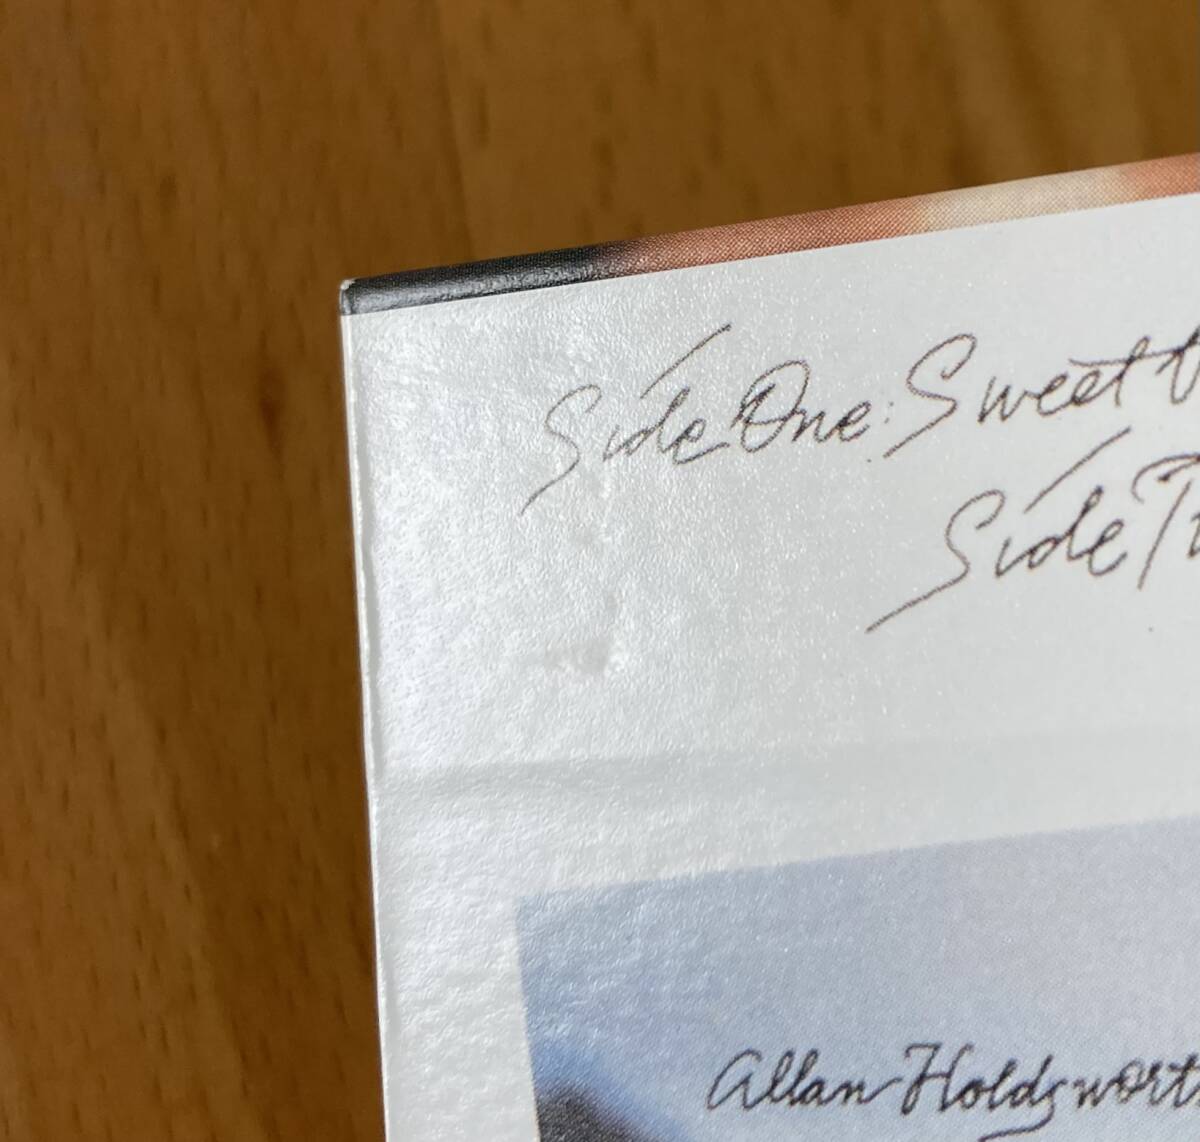 Side One: Sweet
Side
Allan Holdsworth